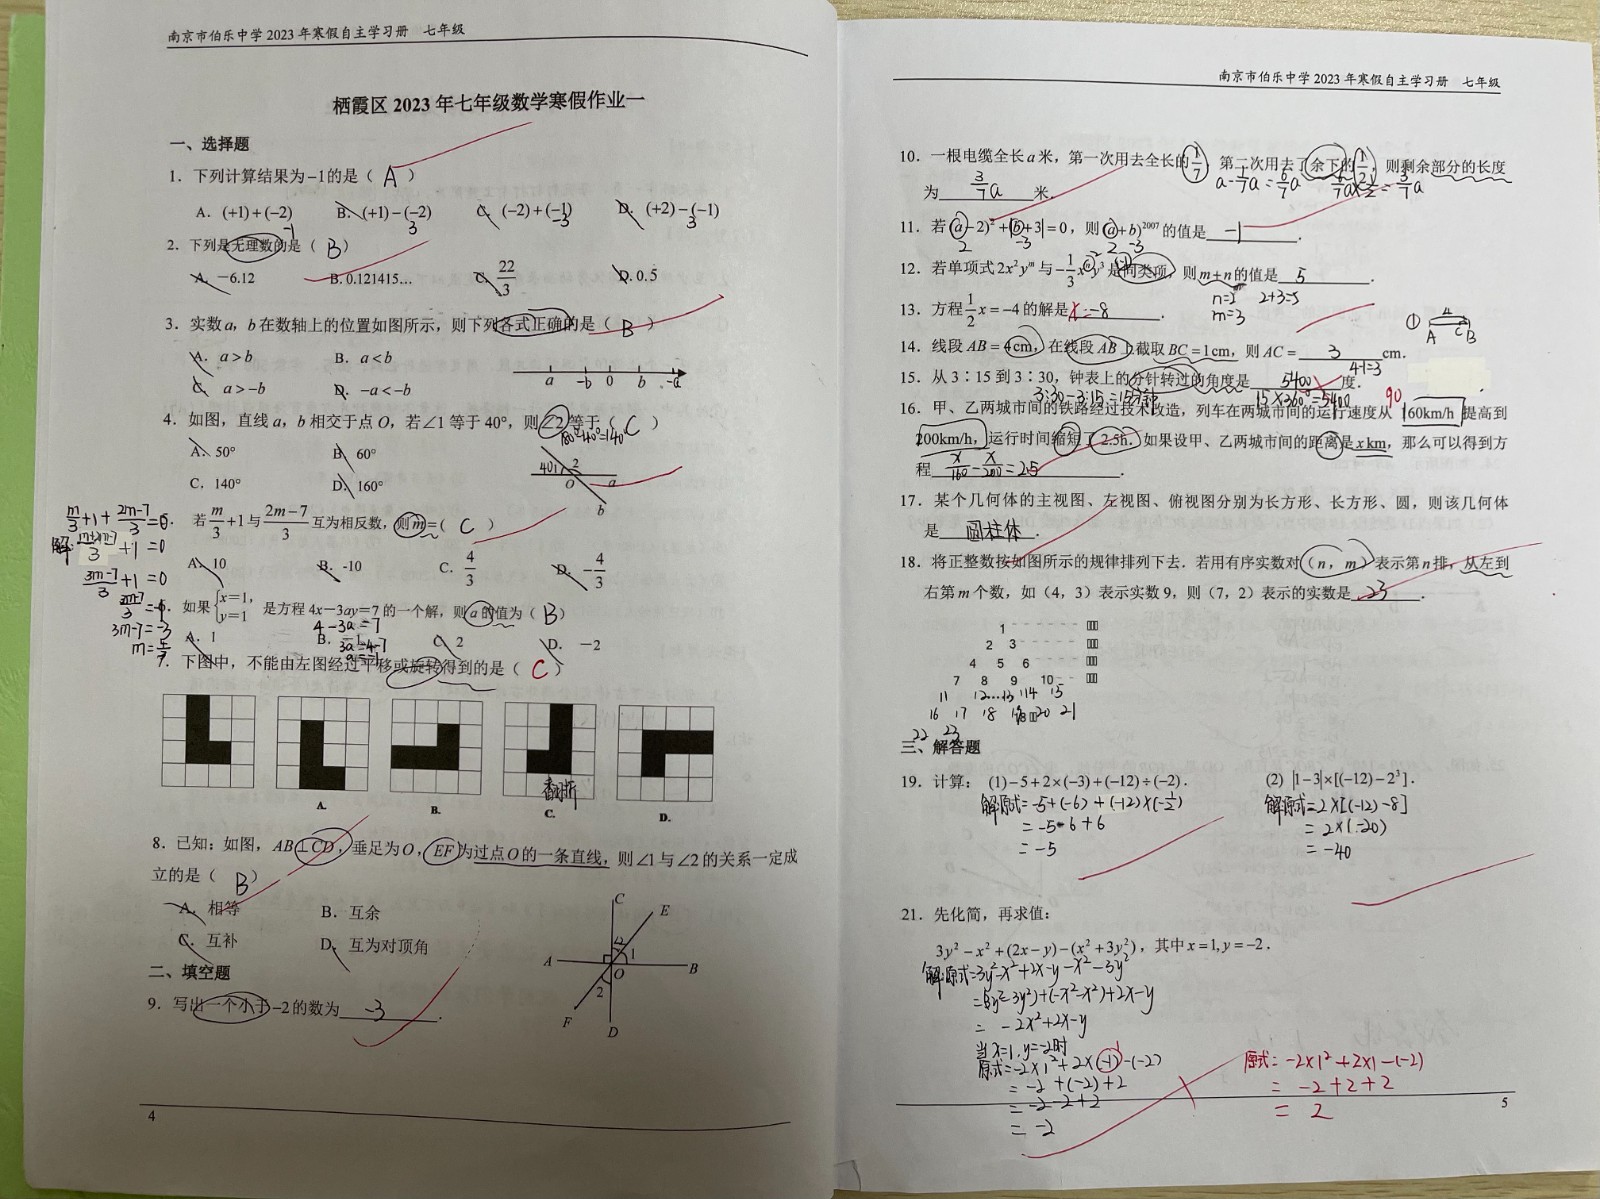 南京市伯乐中学 2023 年寒假自主学习册 七年级
栖霞区 2023 年七年级数学寒假作业一
一、选择题
1. 下列计算结果为 −1 的是（ A ）
A. (+1)+(−2) B. (+1)−(−2) C. (−2)+(−1) D. (+2)−(−1)
-1 3 -3 3
2. 下列是无理数的是（ B ）
A. −6.12 B. 0.121415… C. 22/3 D. 0.5
3. 实数 a, b 在数轴上的位置如图所示，则下列各式正确的是（ B ）
A. a>b B. a<b
C. a>−b D. −a<−b
a -b 0 b -a
4. 如图，直线 a, b 相交于点 O，若∠1 等于 40°，则∠2 等于（ C ）
180°-40°=140°
A. 50° B. 60°
C. 140° D. 160°
40 1 2 O a b
m/3+1+(2m-7)/3=0
5. 若 m/3+1 与 (2m−7)/3 互为相反数，则 m=（ C ）
解: (m+2m-7)/3+1=0
A. 10 B. -10 C. 4/3 D. −4/3
(3m-7)/3+1=0
(3m-7)/3=-1
3m-7=-3
6. 如果{x=1, y=1 是方程 4x−3ay=7 的一个解，则 a 的值为（ B ）
4-3a=7
A. 1 B. −1 C. 2 D. −2
3a=4-7
a=-1
7. 下图中，不能由左图经过平移或旋转得到的是（ C ）
翻折
A. B. C. D.
8. 已知：如图，AB⊥CD，垂足为 O，EF 为过点 O 的一条直线，则∠1 与∠2 的关系一定成
立的是（ B ）
A. 相等 B. 互余
C. 互补 D. 互为对顶角
C E A O 1 B 2 F D
二、填空题
9. 写出一个小于−2 的数为 -3 .
4
南京市伯乐中学 2023 年寒假自主学习册 七年级
10. 一根电缆全长 a 米，第一次用去全长的 1/7，第二次用去了余下的 1/2，则剩余部分的长度
a-1/7a=6/7a 6/7a×1/2=3/7a
为 3/7a 米.
11. 若(a−2)²+|b+3|=0，则(a+b)²⁰⁰⁷的值是 -1 .
2 -3 2 -3
12. 若单项式 2x²yᵐ 与 −1/3xⁿy³ 是同类项，则 m+n 的值是 5 .
n=2 2+3=5
m=3
13. 方程 1/2x=−4 的解是 x=-8 .
14. 线段 AB=4cm，在线段 AB 上截取 BC=1cm，则 AC= 3 cm.
4-1=3
① A C B
15. 从 3∶15 到 3∶30，钟表上的分针转过的角度是 5400 度.
3:30-3:15=15分钟 15×360°=5400 90
16. 甲、乙两城市间的铁路经过技术改造，列车在两城市间的运行速度从 160km/h 提高到
200km/h，运行时间缩短了 2.5h. 如果设甲、乙两城市间的距离是 x km，那么可以得到方
程 x/160-x/200=2.5 .
17. 某个几何体的主视图、左视图、俯视图分别为长方形、长方形、圆，则该几何体
是 圆柱体 .
18. 将正整数按如图所示的规律排列下去. 若用有序实数对（n，m）表示第 n 排，从左到
右第 m 个数，如（4，3）表示实数 9，则（7，2）表示的实数是 23 .
1
2 3
4 5 6
7 8 9 10
11 12 13 14 15
16 17 18 19 20 21
22 23
三、解答题
19. 计算：(1) −5+2×(−3)+(−12)÷(−2). (2) |1−3|×[(−12)−2³].
解:原式=-5+(-6)+(-12)×(-1/2) 解:原式=2×[(-12)-8]
=-5-6+6 =2×(-20)
=-5 =-40
21. 先化简，再求值：
3y²−x²+(2x−y)−(x²+3y²)，其中 x=1, y=−2.
解:原式=3y²-x²+2x-y-x²-3y²
=(3y²-3y²)+(-x²-x²)+2x-y
=-2x²+2x-y
当x=1,y=-2时
原式=-2×1²+2×(-1)-(-2) 原式=-2×1²+2×1-(-2)
=-2+(-2)+2 =-2+2+2
=-2-2+2 =2
=-2
5